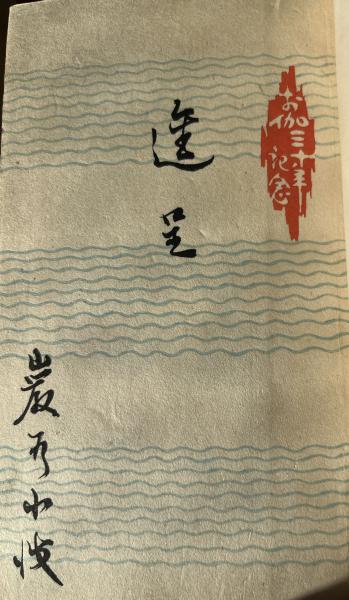 お伽三十年
記念
進呈
巌谷小波